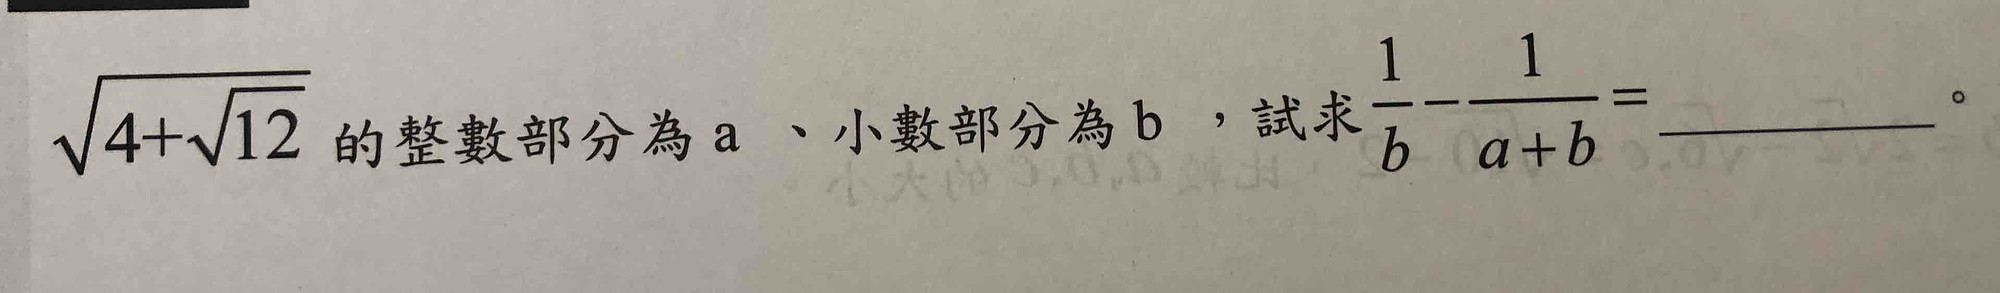 √(4+√12) 的整數部分為 a 、小數部分為 b ，試求 1/b − 1/(a+b) = ________ 。